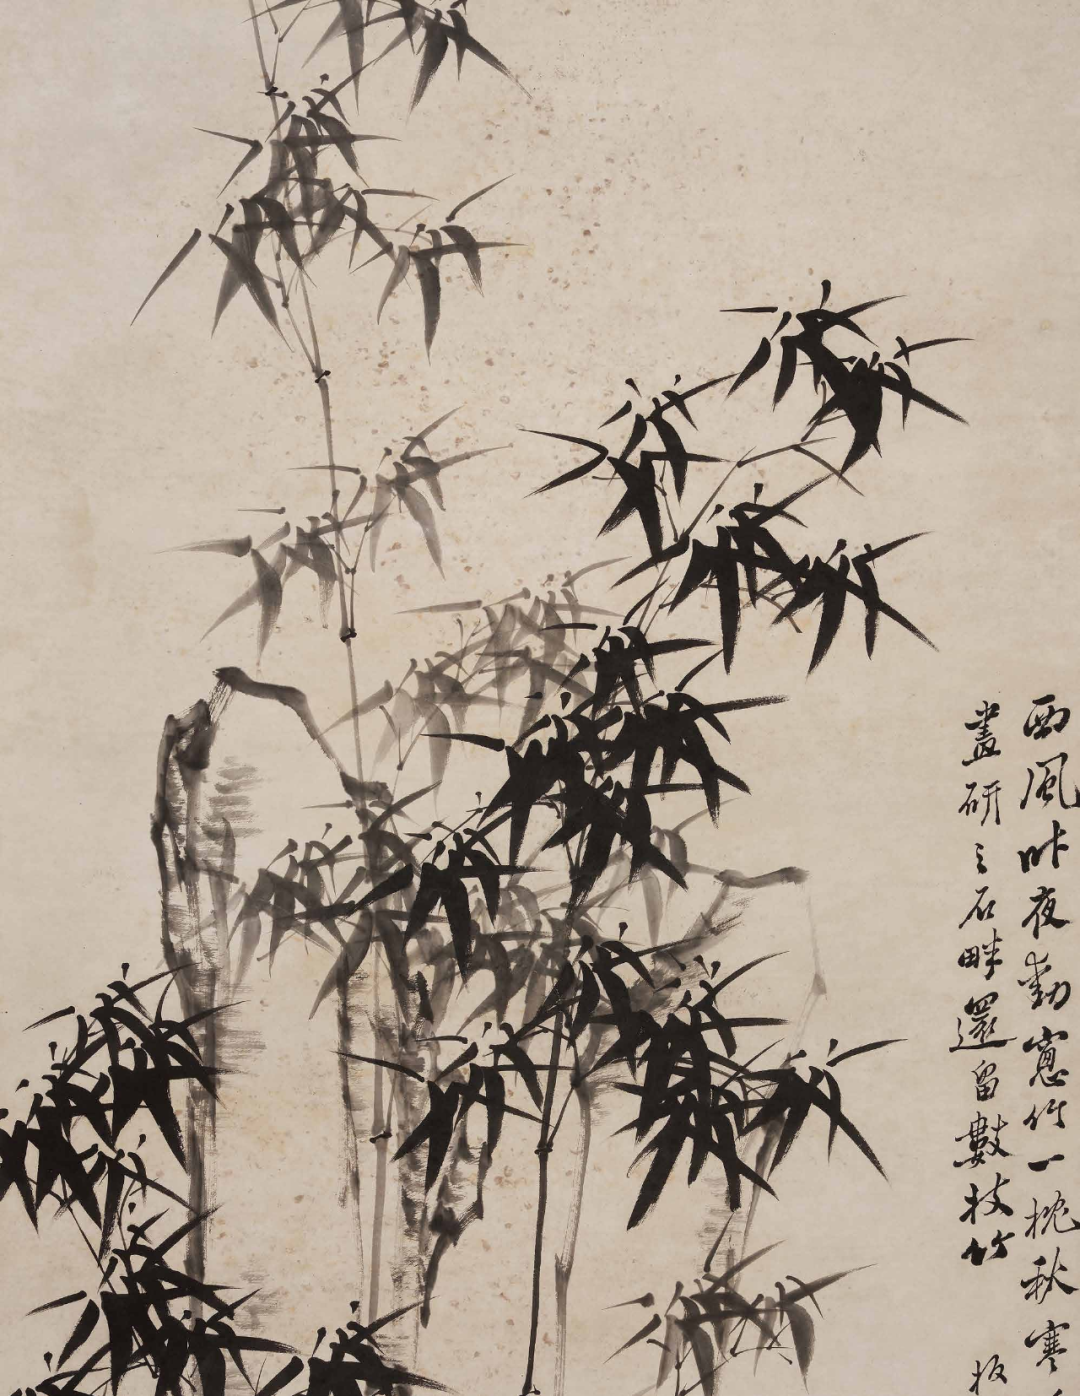 西風昨夜動窻竹一枕秋寒
畫研之石畔還留數枝竹
板